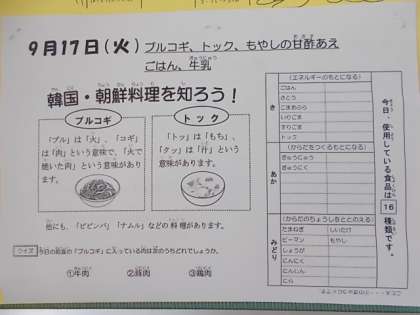 9月17日(火) プルコギ、トック、もやしの甘酢あえ
ごはん、牛乳
韓国・朝鮮料理を知ろう！
プルコギ
「プル」は「火」、「コギ」
は「肉」という意味で、「火で
焼いた肉」という意味があり
ます。
トック
「トッ」は「もち」、
「クッ」は「汁」という
意味があります。
他にも、「ビビンバ」「ナムル」などの料理があります。
クイズ
今日の給食の「プルコギ」に入っている肉は次のうちどれでしょうか。
①牛肉 ②豚肉 ③鶏肉
(エネルギーのもとになる)
き
ごはん
さとう
ごまあぶら
いりごま
すりごま
トック
(からだをつくるもとになる)
あか
ぎゅうにゅう
ぎゅうにく
(からだのちょうしをととのえる)
みどり
たまねぎ しいたけ
ピーマン もやし
しょうが
にんにく
にんじん
にら
今日、使用している食品は
16
種類です。